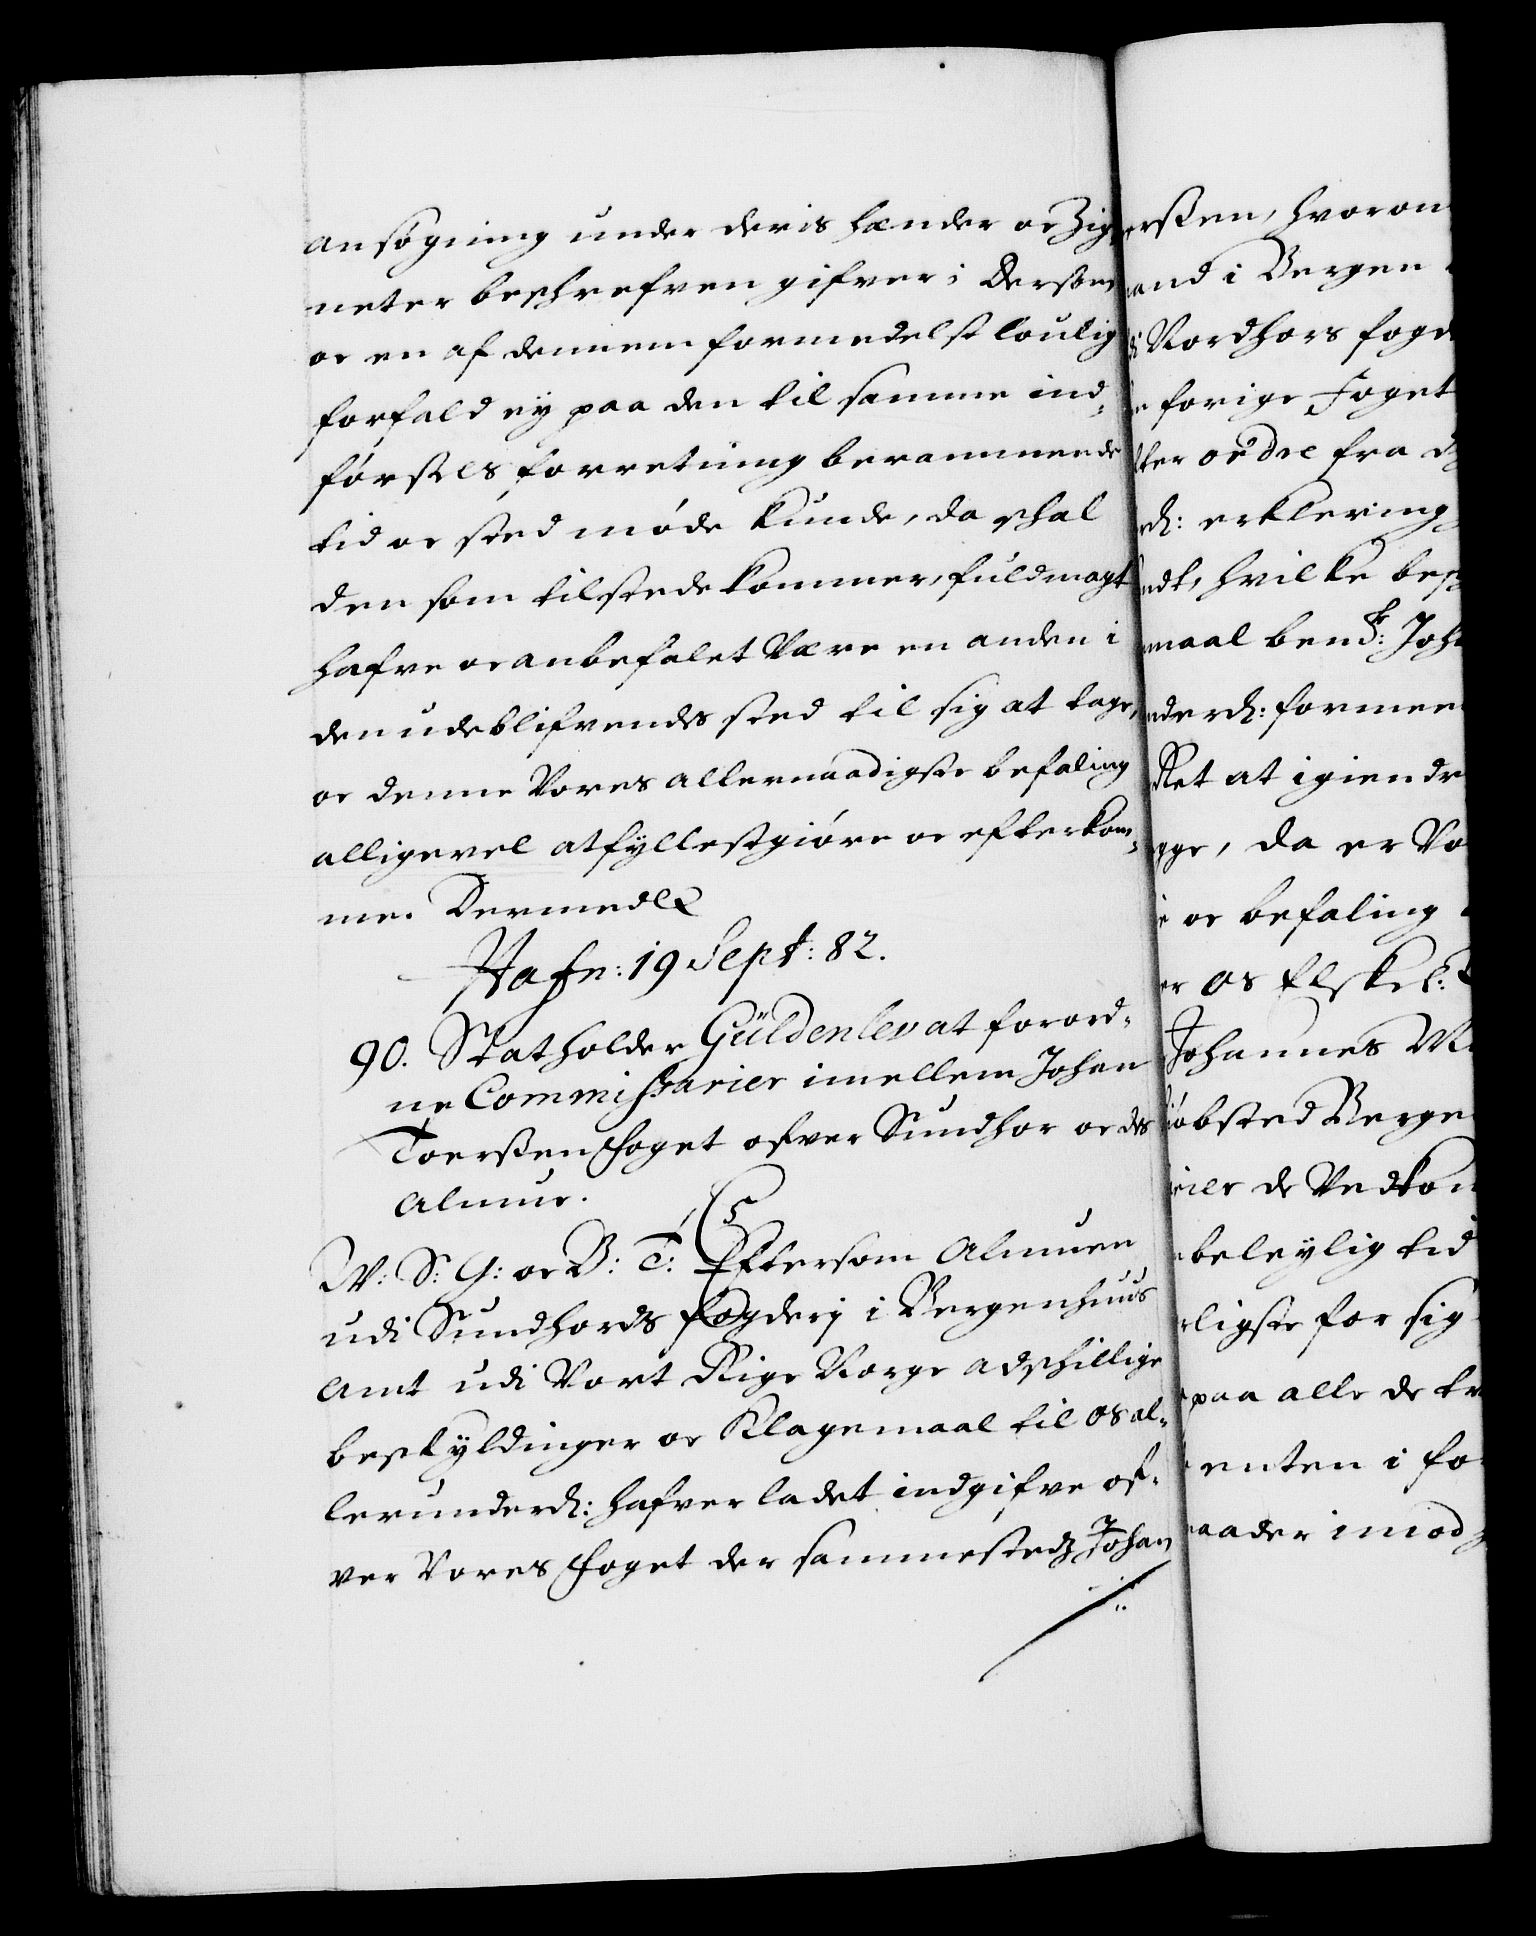 ansøgning under deris hænder oc Zig,
neter beschrefven gifver; Dersom
oc en af dennem formedelst loulig
forfald ey paa den til samme ind„
førsels forretning berammende
tid oc sted møde kunde, da schal
den som tilstede kommer, fuldmagt
hafve oc anbefalet være en anden i
den udeblifvendes sted til sig at tage,
oc denne Vores allernaadigste befaling
alligevel at fyllestgiøre oc efterkom„
me. Dermed
Hafn: 19 Sept: 82.
90. Statholder Güldenlev at forord„
ne Commissarier imellem Johan
Toerssen foget ofver Sundhor oc des
Almue.
W: S: G: oc B: T: Eftersom Almuen
udi Sundhords fogderj i Bergenhuus
Amt udi Vort Rige Norge adschillige
beskyldinger oc Klagemaal til os al„
lerunderd: hafver ladet indgifve of„
ver Vores foget der sammestedz Johan
erssen, hvorom
and i Bergen
di Nordhors fogd
e forige Foget
fter ordre fra
erd: erklering
ndt, hvilke besk
maal bemt: Joh
nderd: formeen
Ret at igiendr
gge, da er Vo
e oc befaling
er os Elskel:
Johannes M
iøbsted Berge
rier de Vedkom
beleylig tid
rligste for sig
paa alle de tv
enten i fo
aader imod